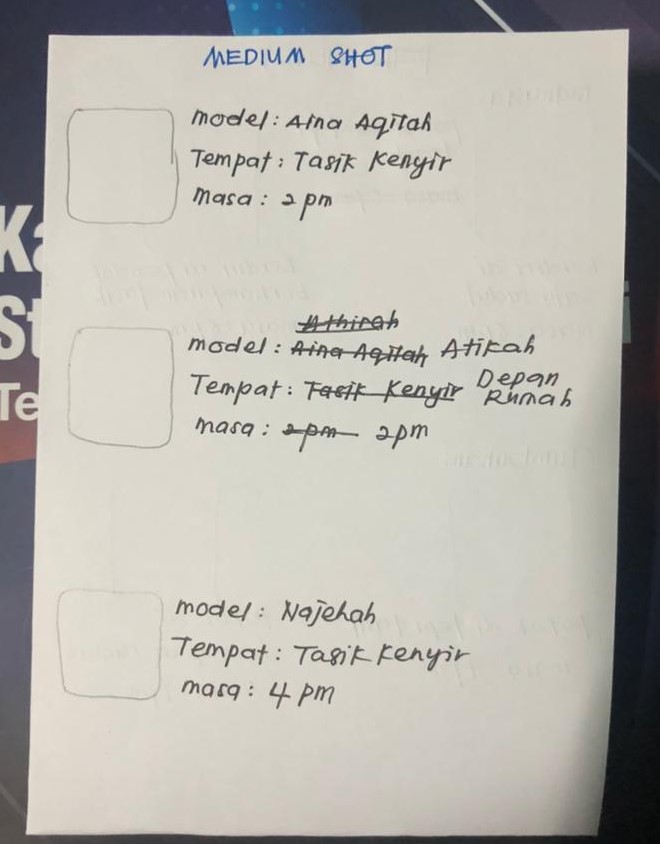 MEDIUM SHOT
model : Aina Aqilah
Tempat : Tasik Kenyir
masa : 2 pm
Athirah
model : Aina Aqilah Atikah
Tempat : Tasik Kenyir Depan Rumah
masa : 2pm 2pm
model : Najehah
Tempat : Tasik Kenyir
masa : 4 pm
Ka
St
Te